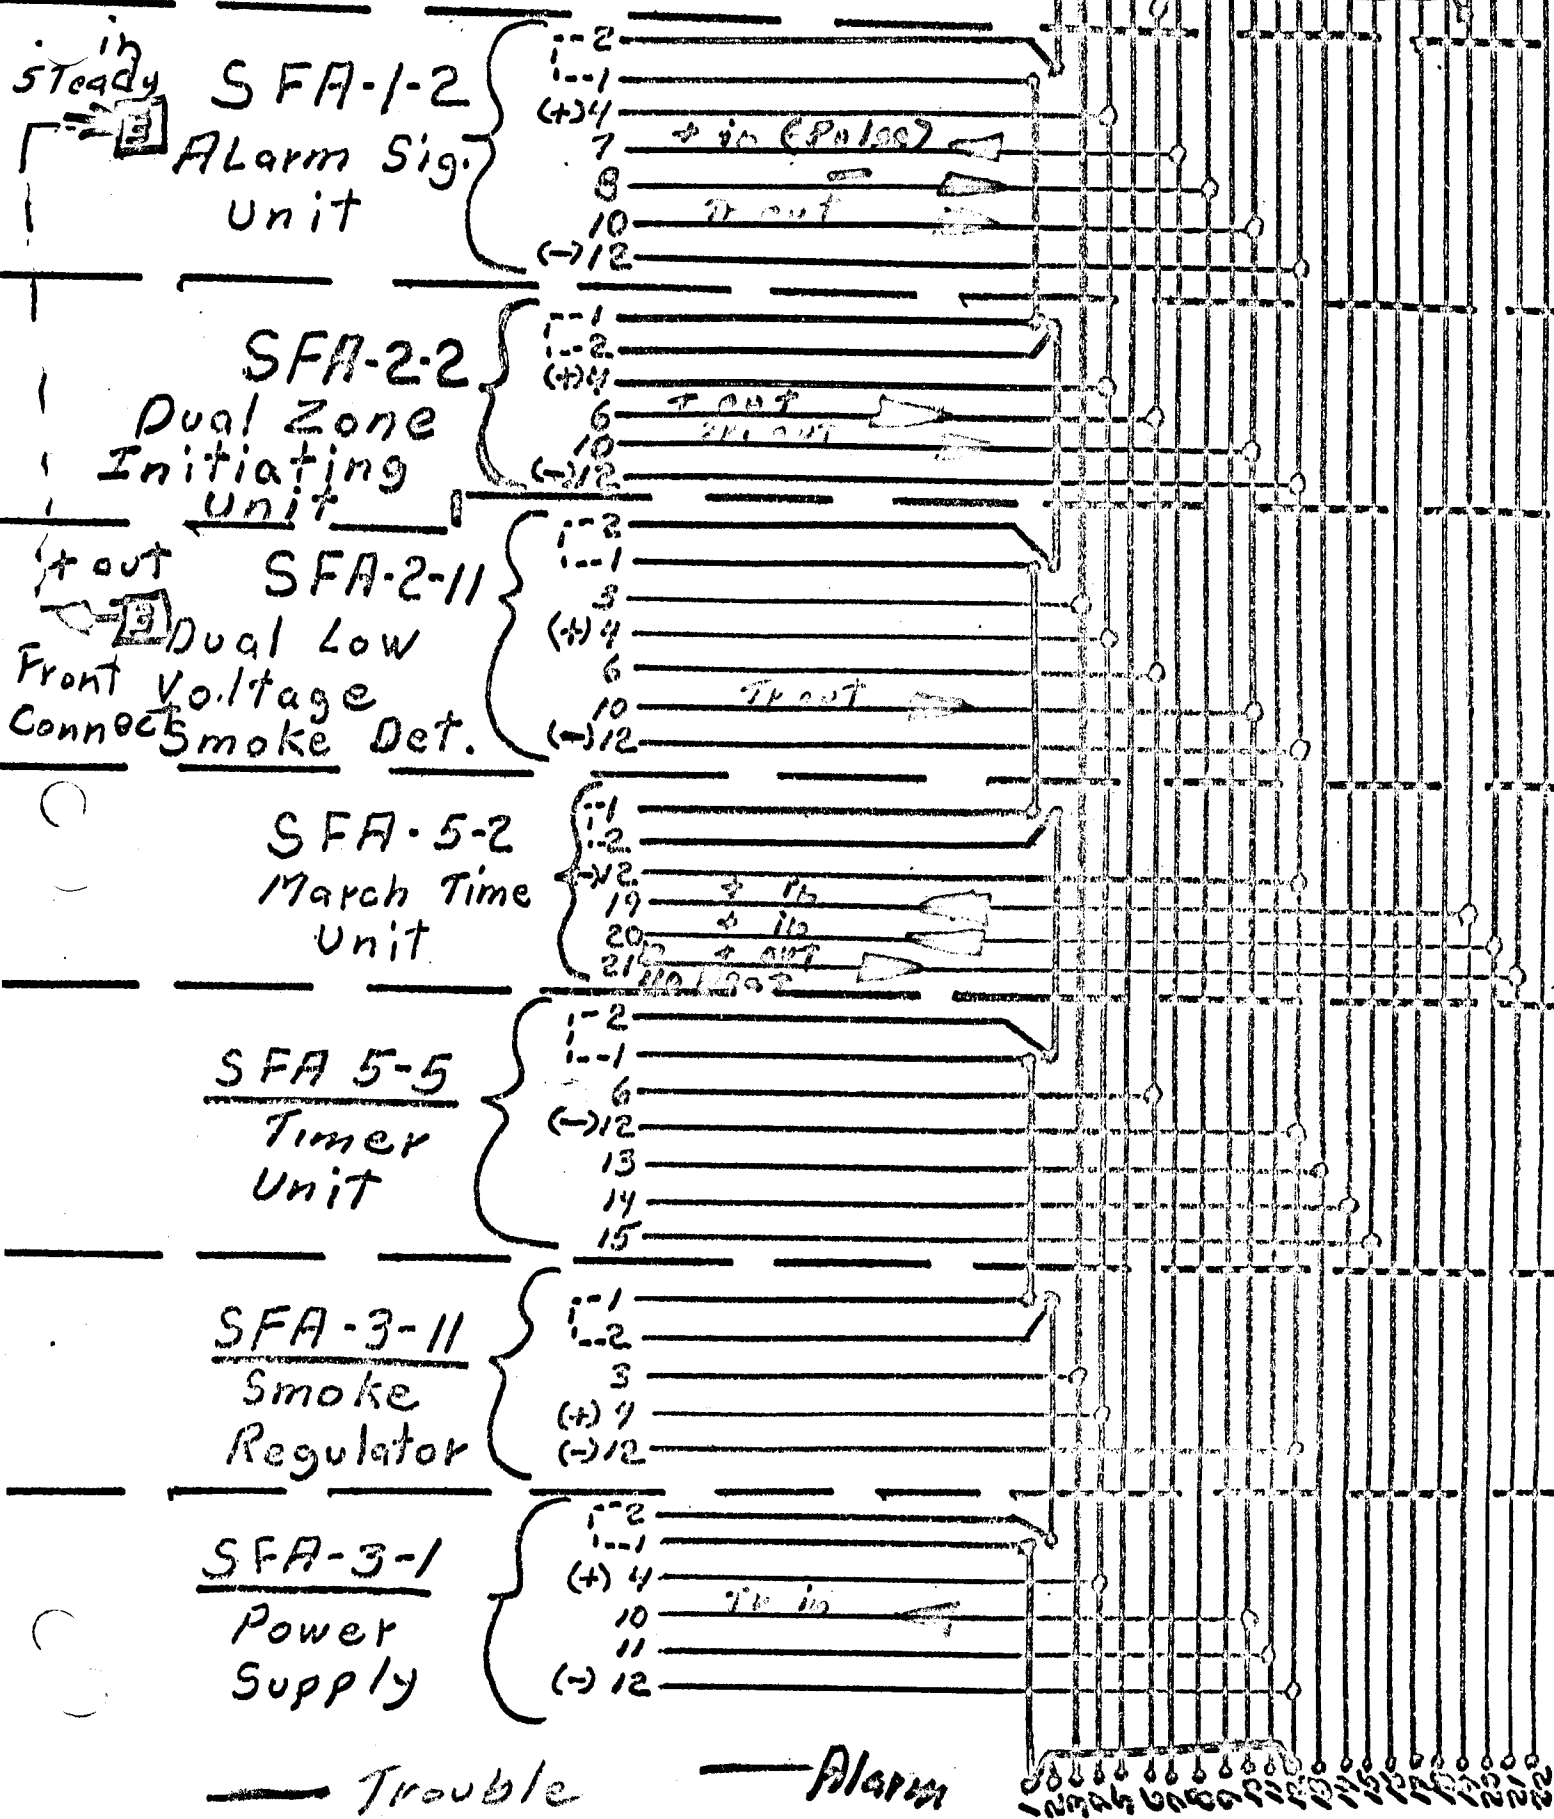 in
Steady
E
SFA-1-2
Alarm Sig.
Unit
2
1
(+)4
7 + in (Pulse)
8 -
10 Tr out
(-)12
SFA-2-2
Dual Zone
Initiating
Unit
1
2
(+)4
6 + out
10 out
(-)12
+ out
E
Front
Connect
SFA-2-11
Dual Low
Voltage
Smoke Det.
2
1
3
(+)4
6
10 Tr out
(-)12
SFA-5-2
March Time
Unit
1
2
(-)12
19 + in
20 + in
21 + out
SFA 5-5
Timer
Unit
2
1
6
(-)12
13
14
15
SFA-3-11
Smoke
Regulator
1
2
3
(+)4
(-)12
SFA-3-1
Power
Supply
2
1
(+)4
10 Tr in
11
(-)12
Trouble
Alarm
1 2 3 4 5 6 7 8 9 10 11 12 13 14 15 16 17 18 19 20 21 22